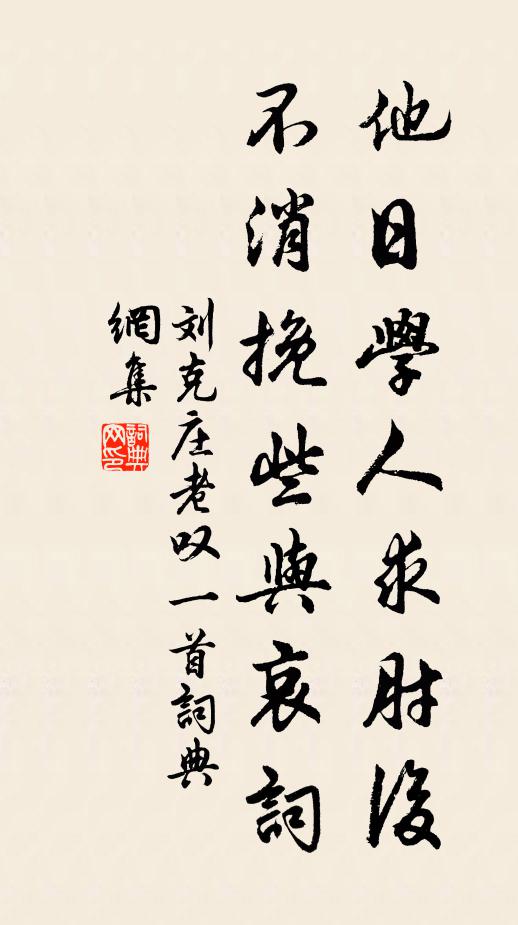 他日學人求肘後
不消挽些與哀詞
刘克庄老叹一首詞典
網集
詞典
网印